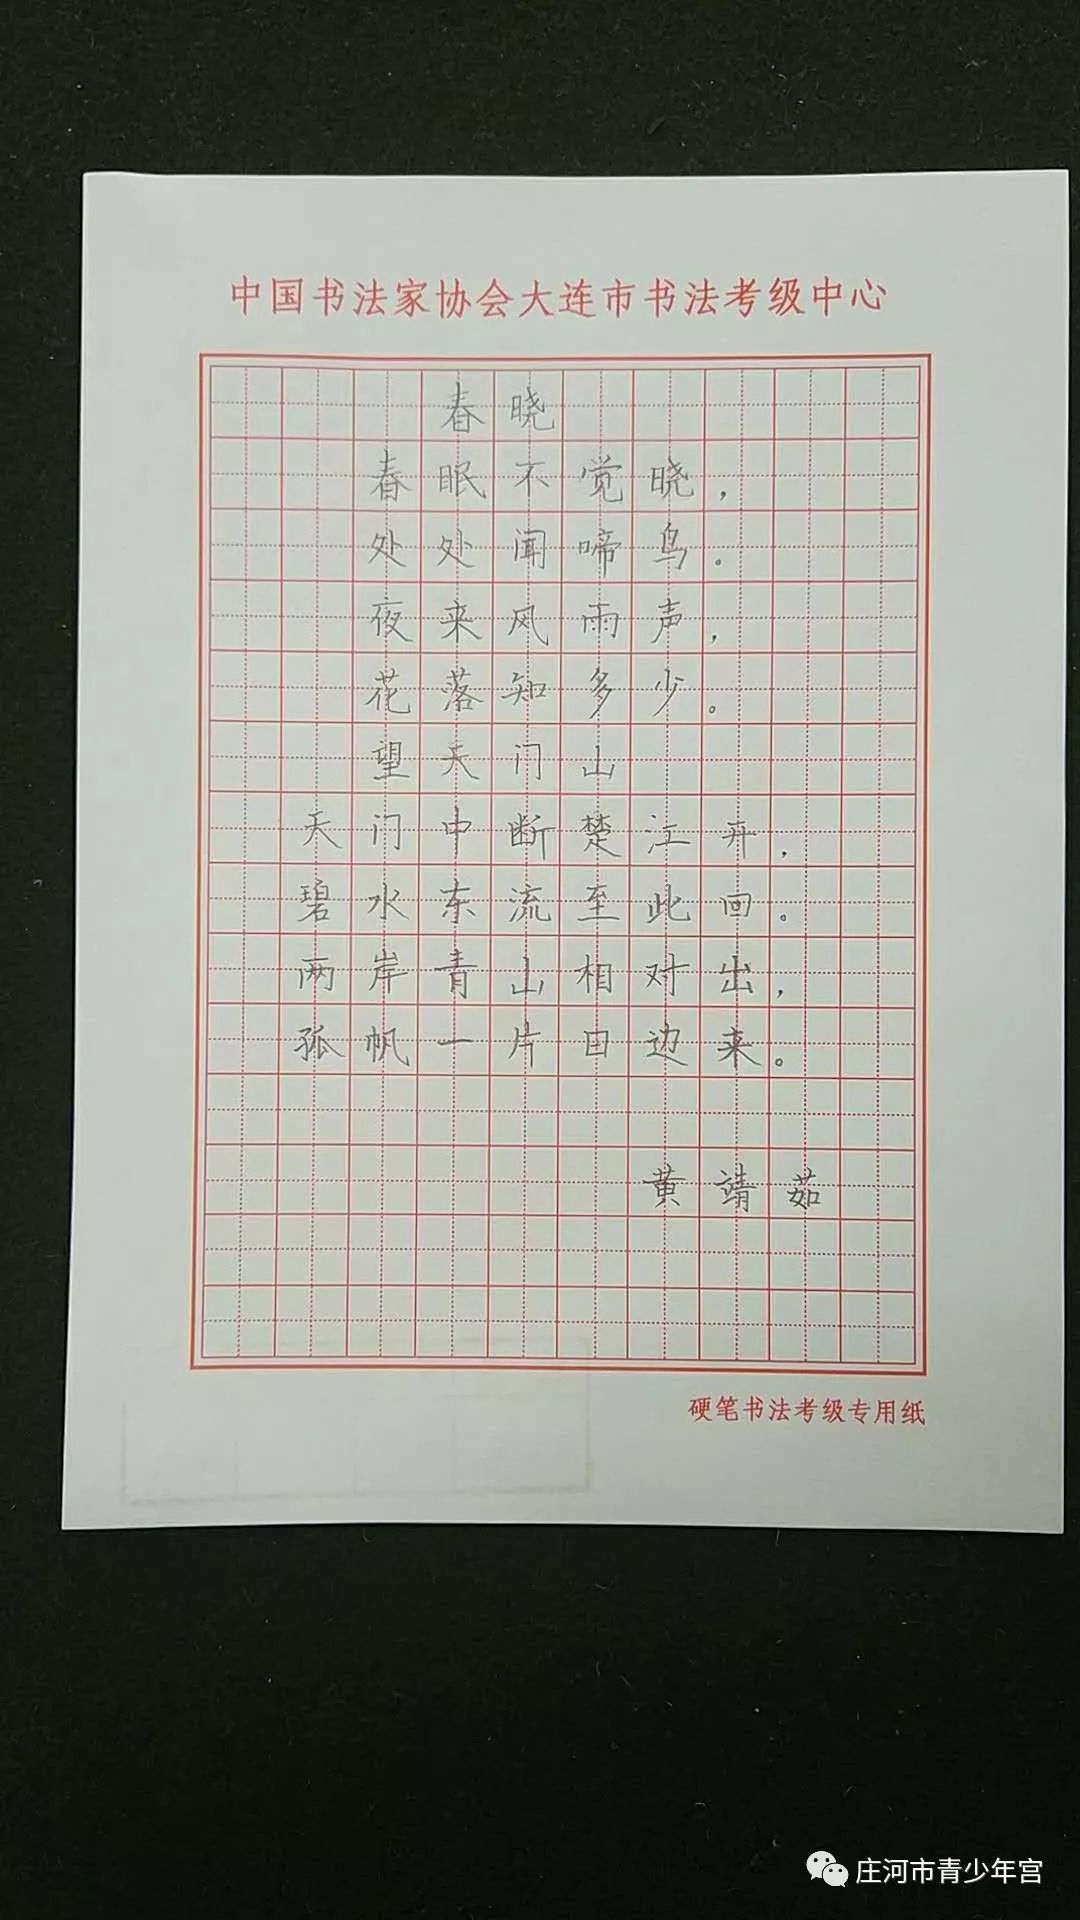 中国书法家协会大连市书法考级中心
春晓
春眠不觉晓，
处处闻啼鸟。
夜来风雨声，
花落知多少。
望天门山
天门中断楚江开，
碧水东流至此回。
两岸青山相对出，
孤帆一片日边来。
黄靖茹
硬笔书法考级专用纸
庄河市青少年宫